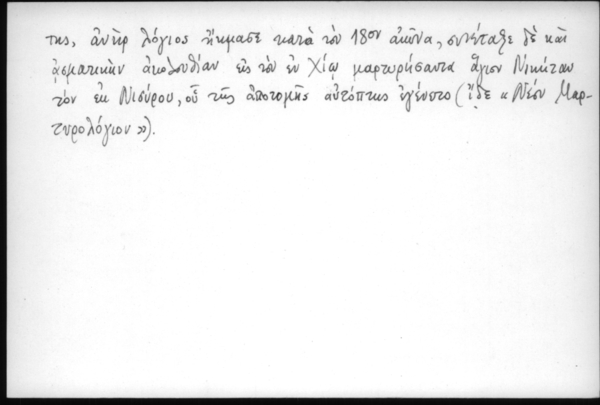 της, ἀνὴρ λόγιος ἤκμασε κατὰ τὸν 18ον αἰῶνα, συνέταξε δὲ καὶ
ᾀσματικὴν ἀκολουθίαν εἰς τὸν ἐν Χίῳ μαρτυρήσαντα ἅγιον Νικήταν
τὸν ἐκ Νισύρου, οὗ τῆς ἀποτομῆς αὐτόπτης ἐγένετο (ἴδε « Νέον Μαρ-
τυρολόγιον »).